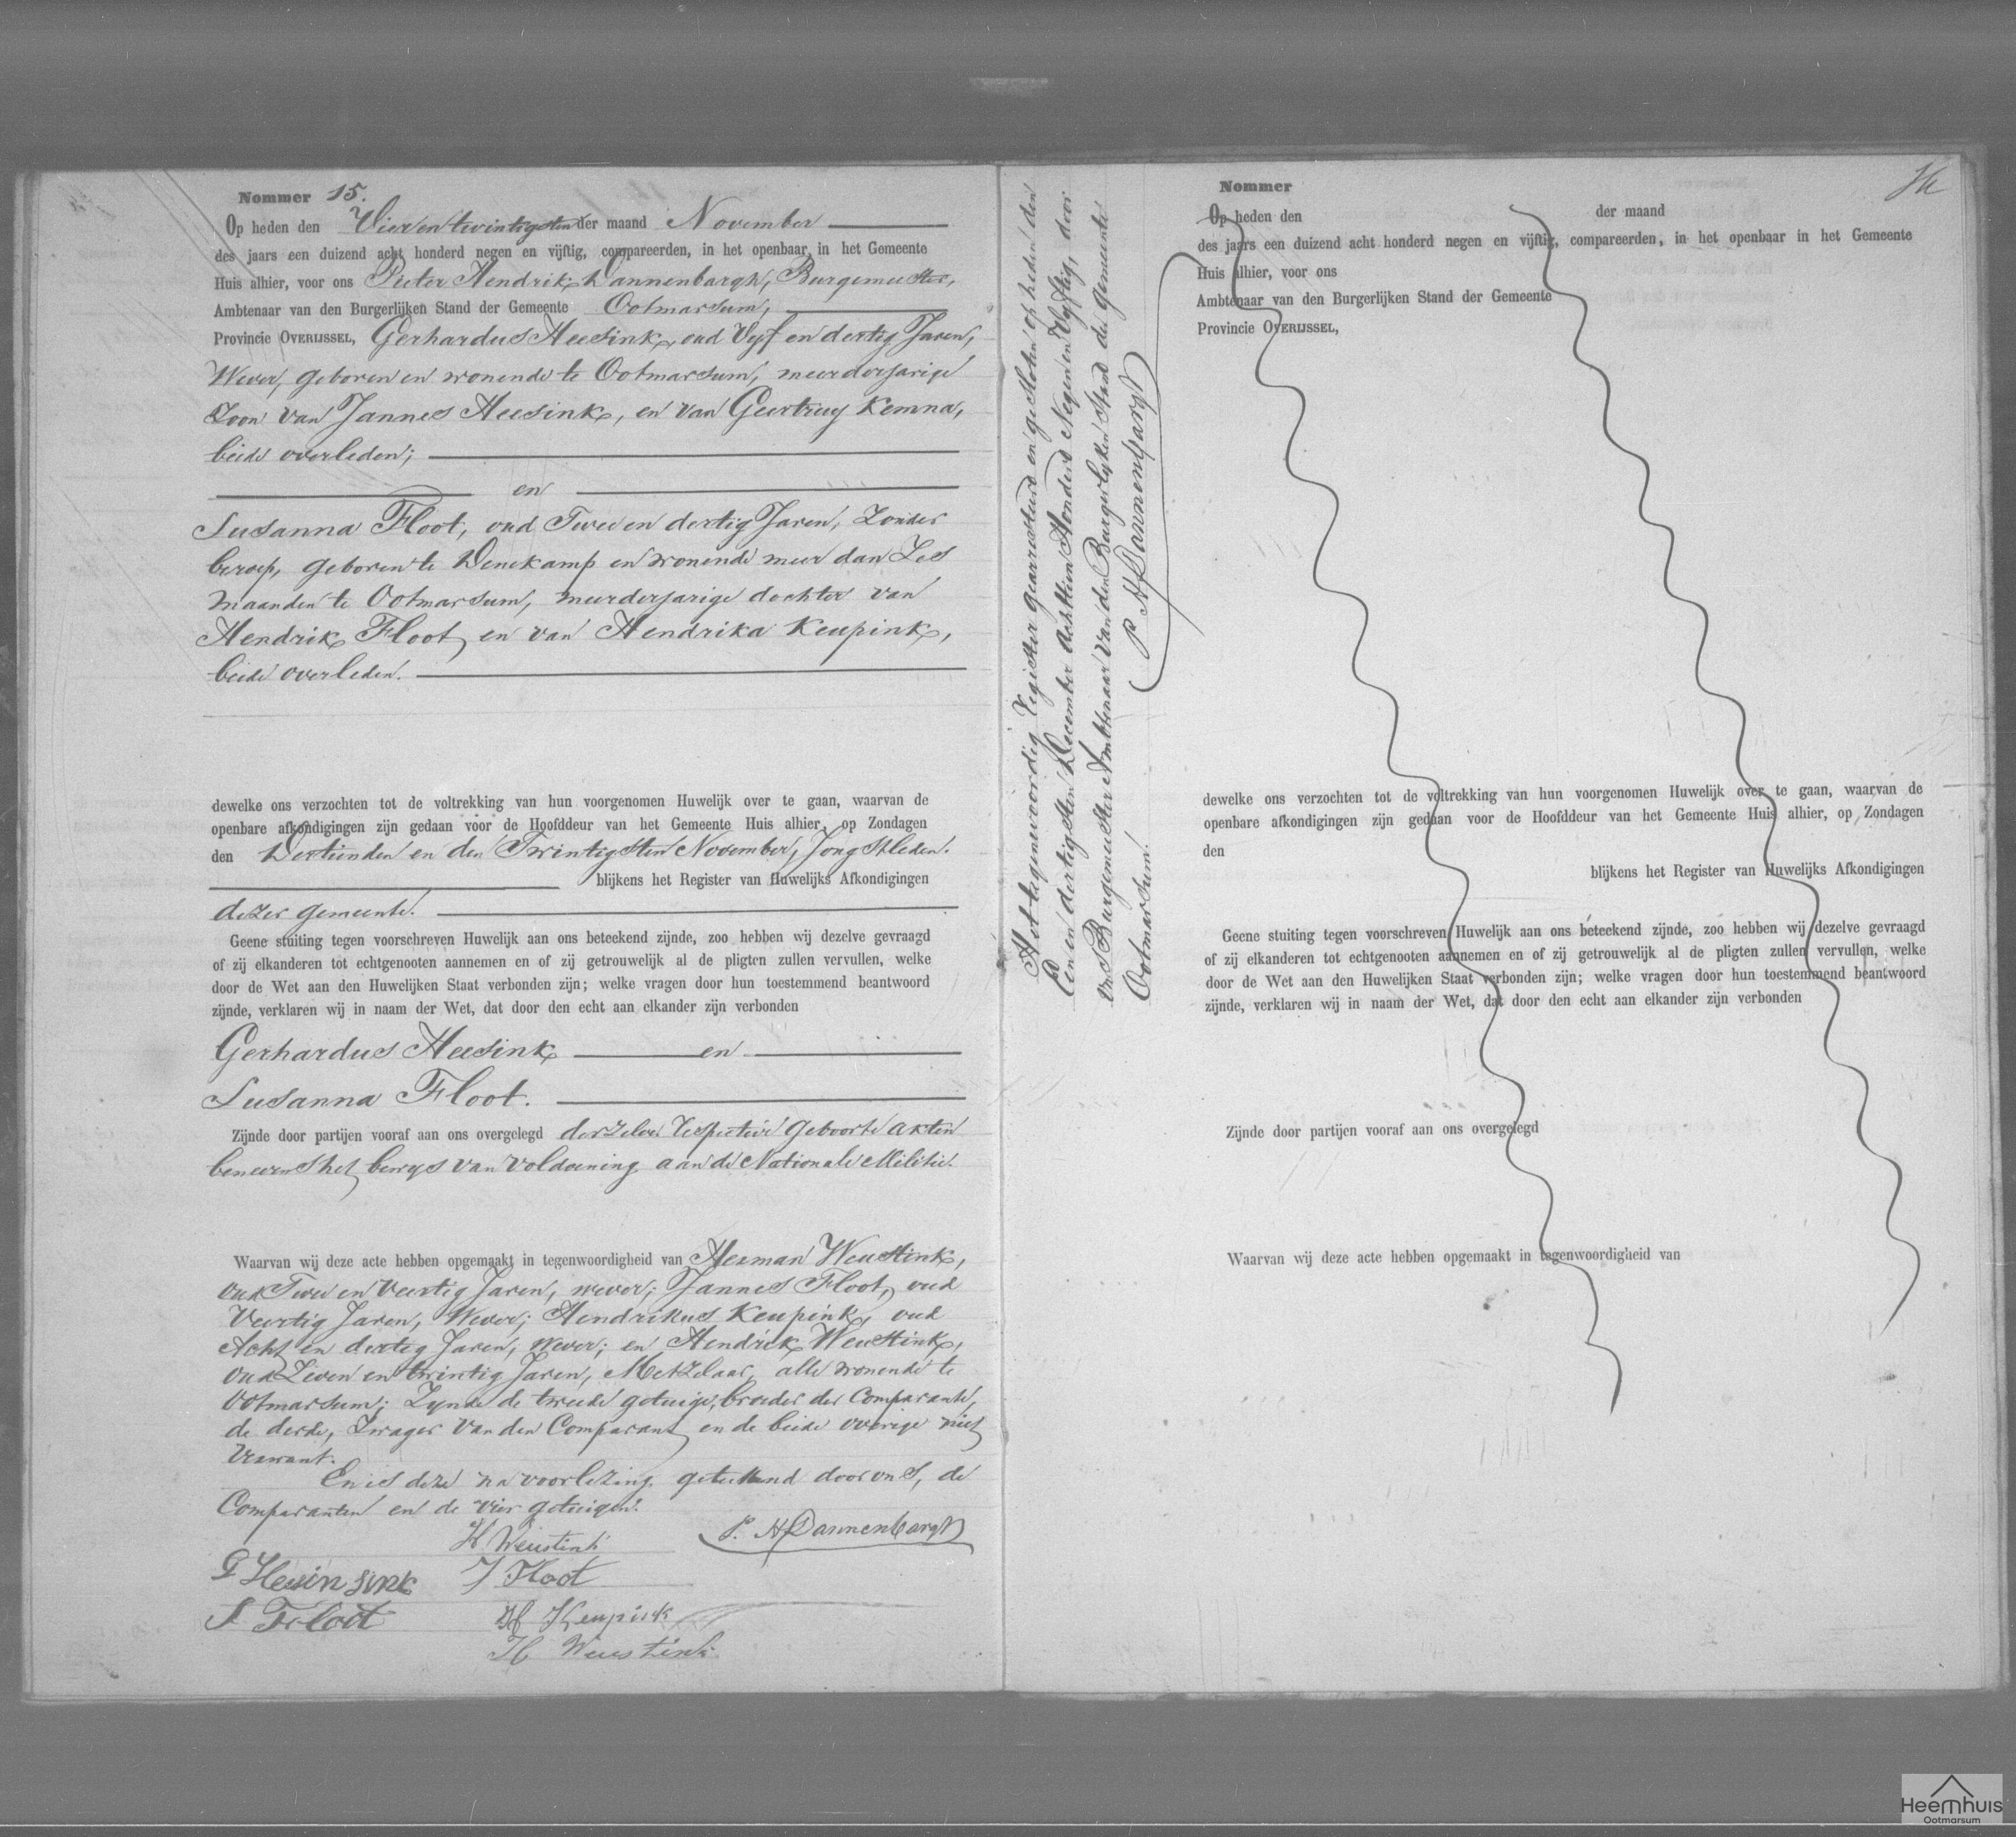 Nommer 15.
Op heden den Vier en twintigsten der maand November
des jaars een duizend acht honderd negen en vijftig, compareerden, in het openbaar, in het Gemeente
Huis alhier, voor ons Pieter Hendrik Dannenbargh, Burgemeester,
Ambtenaar van den Burgerlijken Stand der Gemeente Ootmarsum,
Provincie OVERIJSSEL, Gerhardus Heesink, oud Vyf en dertig Jaren,
Wever, geboren en wonende te Ootmarsum, meerderjarige
Zoon van Jannes Heesink, en van Geertruy Kemna,
beide overleden;
en
Susanna Floot, oud Twee en dertig Jaren, Zonder
beroep, geboren te Denekamp en wonende meer dan Zes
maanden te Ootmarsum, meerderjarige dochter van
Hendrik Floot, en van Hendrika Keupink,
beide overleden.
dewelke ons verzochten tot de voltrekking van hun voorgenomen Huwelijk over te gaan, waarvan de
openbare afkondigingen zijn gedaan voor de Hoofddeur van het Gemeente Huis alhier, op Zondagen
den Dertienden en den Twintigsten November, Jongstleden.
blijkens het Register van Huwelijks Afkondigingen
dezer gemeente.
Geene stuiting tegen voorschreven Huwelijk aan ons beteekend zijnde, zoo hebben wij dezelve gevraagd
of zij elkanderen tot echtgenooten aannemen en of zij getrouwelijk al de pligten zullen vervullen, welke
door de Wet aan den Huwelijken Staat verbonden zijn; welke vragen door hun toestemmend beantwoord
zijnde, verklaren wij in naam der Wet, dat door den echt aan elkander zijn verbonden
Gerhardus Heesink en
Susanna Floot.
Zijnde door partijen vooraf aan ons overgelegd derzelver respective geboorte akten
benevens het bewys van voldoening aan de Nationale Militie.
Waarvan wij deze acte hebben opgemaakt in tegenwoordigheid van Herman Weustink,
oud Twee en Veertig Jaren, wever; Jannes Floot, oud
Veertig Jaren, Wever; Hendrikus Keupink, oud
Acht en dertig Jaren, wever; en Hendrik Weustink,
oud Zeven en twintig Jaren, Metzelaar, alle wonende te
Ootmarsum; Zynde de tweede getuige, broeder der Comparante,
de derde, Zwager van den Comparant en de beide overige niet
verwant.
En is deze na voorlezing geteekend door ons, de
Comparanten en de vier getuigen.
H Weustink P. H Dannenbargh
G Heesinsink J Floot
S Floot H Keupink
H Weustink
Het tegenwoordig Register gearresteerd en gesloten op heden den
Een en dertigsten December Achttien Honderd Negen en Vyftig, door
ons Burgemeester Ambtenaar van den Burgerlyken Stand der gemeente
Ootmarsum. P H Dannenbargh
Nommer
Op heden den der maand
des jaars een duizend acht honderd negen en vijftig, compareerden, in het openbaar in het Gemeente
Huis alhier, voor ons
Ambtenaar van den Burgerlijken Stand der Gemeente
Provincie OVERIJSSEL,
dewelke ons verzochten tot de voltrekking van hun voorgenomen Huwelijk over te gaan, waarvan de
openbare afkondigingen zijn gedaan voor de Hoofddeur van het Gemeente Huis alhier, op Zondagen
den
blijkens het Register van Huwelijks Afkondigingen
Geene stuiting tegen voorschreven Huwelijk aan ons beteekend zijnde, zoo hebben wij dezelve gevraagd
of zij elkanderen tot echtgenooten aannemen en of zij getrouwelijk al de pligten zullen vervullen, welke
door de Wet aan den Huwelijken Staat verbonden zijn; welke vragen door hun toestemmend beantwoord
zijnde, verklaren wij in naam der Wet, dat door den echt aan elkander zijn verbonden
Zijnde door partijen vooraf aan ons overgelegd
Waarvan wij deze acte hebben opgemaakt in tegenwoordigheid van
Heemhuis
Ootmarsum